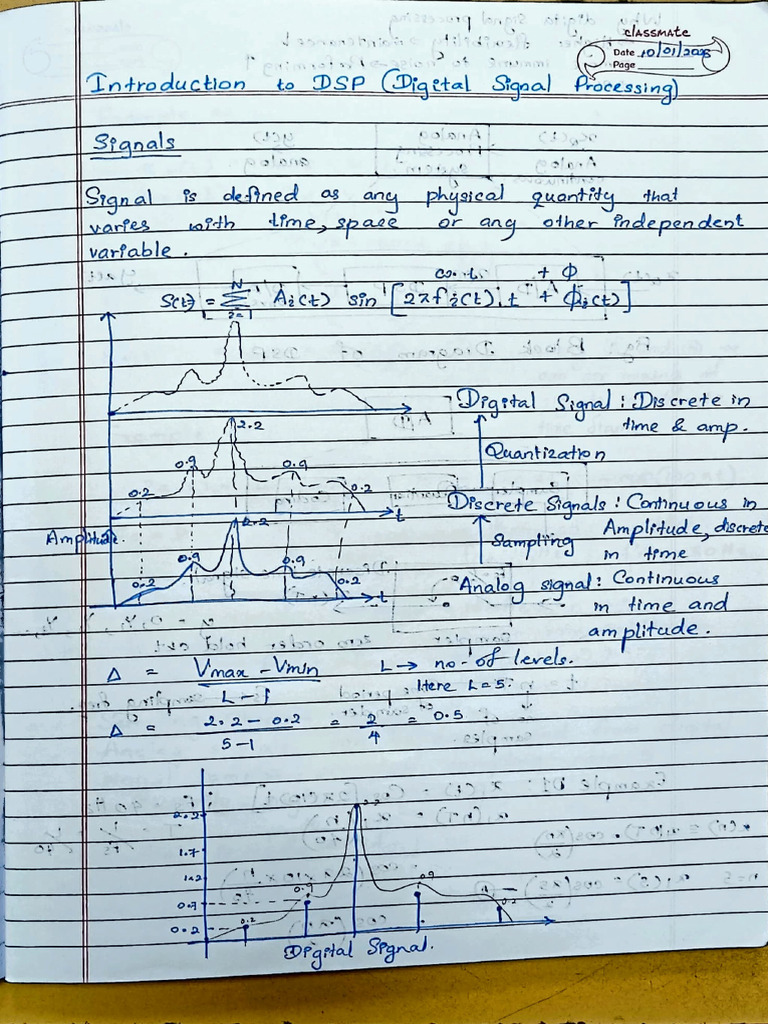 classmate
Date 10/01/2025
Page
Introduction to DSP (Digital Signal Processing)
Signals
Signal is defined as any physical quantity that
varies with time, space or any other independent
variable.
ω. t. + Φ
S(t) = Σ Ai(t) sin [2πfi(t). t + Φi(t)]
N
i=1
Digital Signal : Discrete in
time & amp.
Quantization
2.2
0.9
0.9
0.2
0.2
t
Discrete Signals : Continuous in
Amplitude, discrete
in time
Sampling
Amplitude.
2.2
0.9
0.9
0.2
0.2
t
Analog signal : Continuous
in time and
amplitude.
Δ = Vmax - Vmin / L - 1
L → no. of levels.
Here L = 5.
Δ = 2.2 - 0.2 / 5-1 = 2/4 = 0.5
2.2
1.7
1.2
0.7
0.2
0.2
0.9
0.9
0.2
Digital Signal.